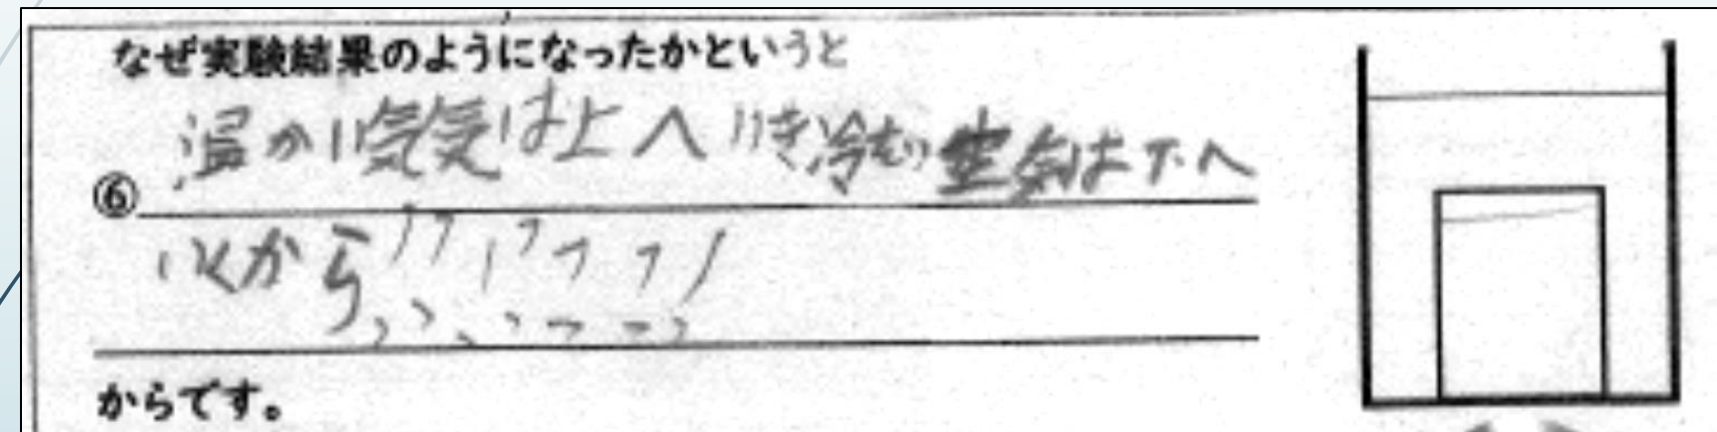 なぜ実験結果のようになったかというと
温かい気気は上へいき冷むい空気は下へ
⑥
いくから
からです。